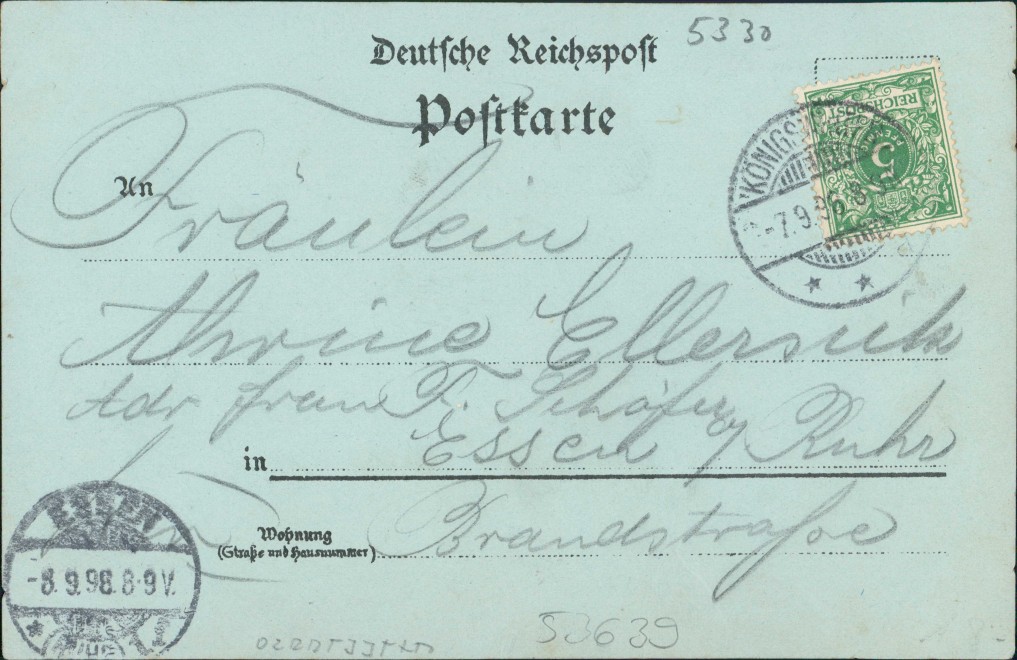 5330
Deutsche Reichspost
Postkarte
REICHSPOST
5
PFENNIG
KÖNIGS
-7.9.98. 8
An Fräulein
Alwine Ellersiek
Adr frau F. Schäfer
in Essen / Ruhr
Wohnung
(Straße und Hausnummer)
Brandstraße
ESSEN
-8.9.98. 8-9 V.
53639